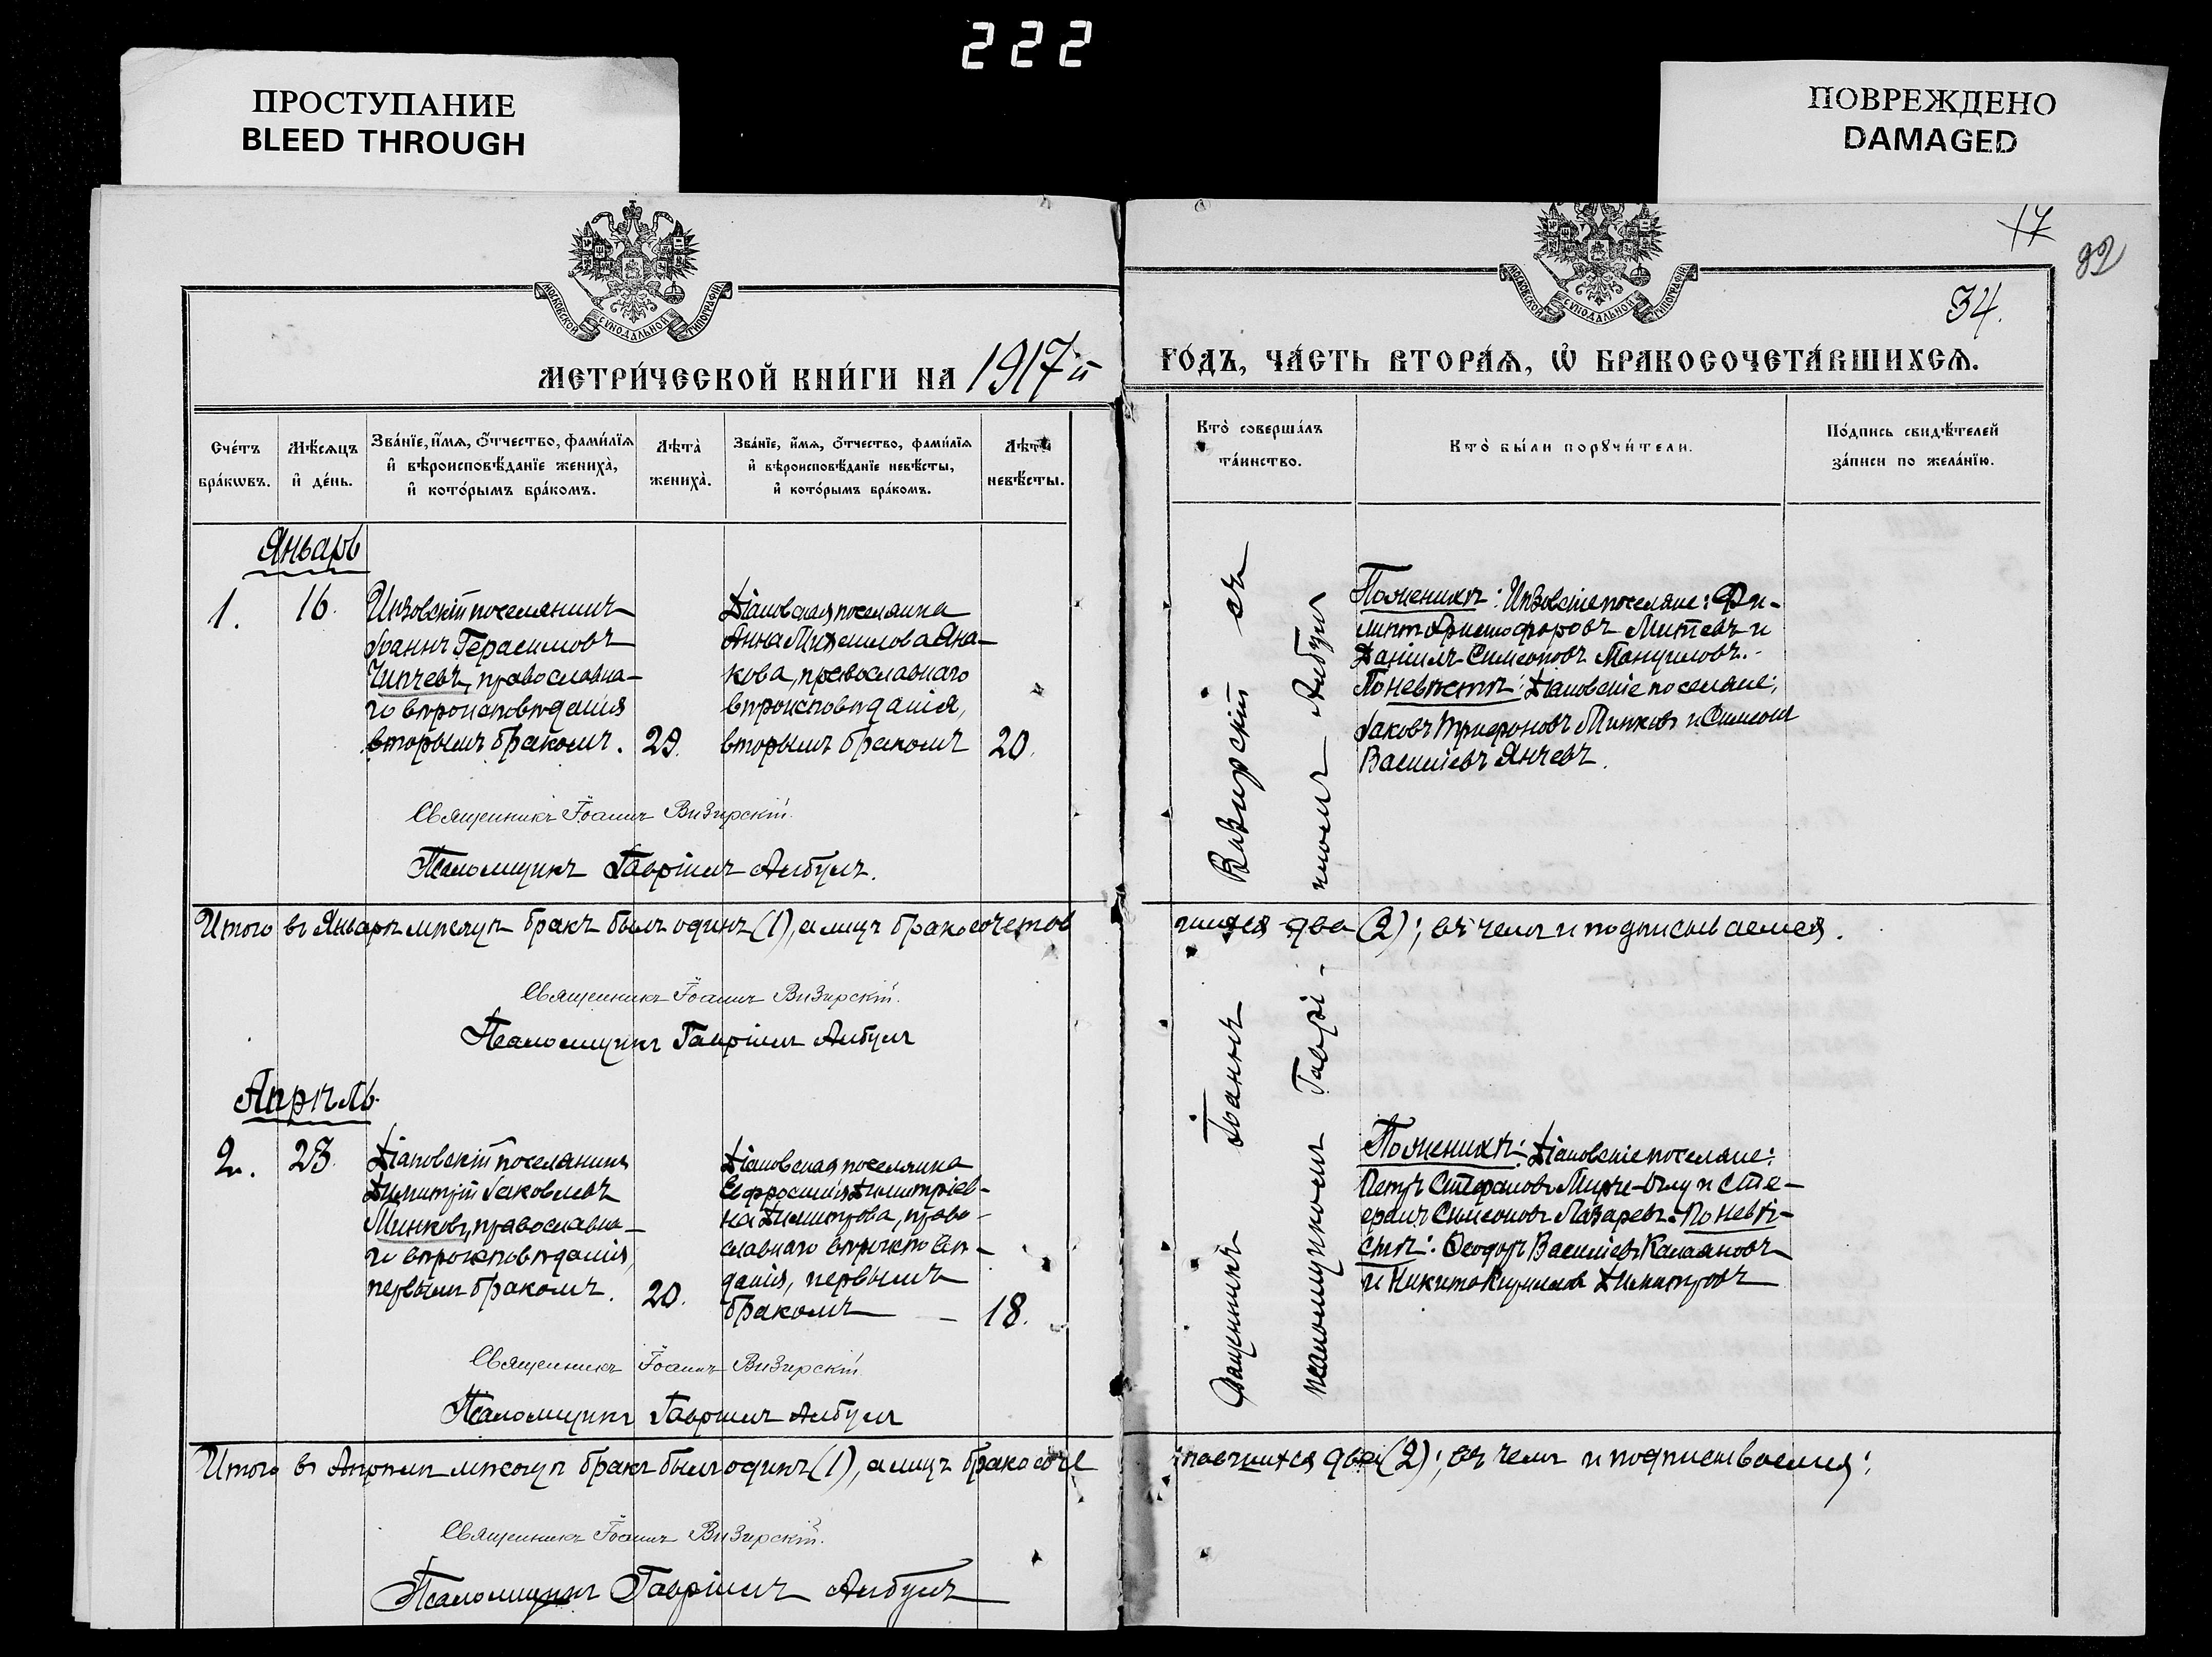 222
ПРОСТУПАНИЕ
BLEED THROUGH
ПОВРЕЖДЕНО
DAMAGED
17
34.
МОСКОВСКОЙ СѴНОДАЛЬНОЙ ТИПОГРАФІИ
МОСКОВСКОЙ СѴНОДАЛЬНОЙ ТИПОГРАФІИ
МЕТРИ́ЧЕСКОЙ КНИ́ГИ НА 1917й
ГО́ДЪ, ЧА́СТЬ ВТОРА́Ѧ, Ѡ҆ БРАКОСОЧЕТА́ВШИХСѦ.
Сче́тъ
бра́кѡвъ.
Мѣ́сѧцъ
и҆ де́нь.
Зва́нїе, и҆́мѧ, ѻ҆́тчество, фами́лїѧ
и҆ вѣроисповѣ́данїе жениха̀,
и҆ кото́рымъ бра́комъ.
Лѣта̀
жениха̀.
Зва́нїе, и҆́мѧ, ѻ҆́тчество, фами́лїѧ
и҆ вѣроисповѣ́данїе невѣ́сты,
и҆ кото́рымъ бра́комъ.
Лѣта̀
невѣ́сты.
Кто̀ соверша́лъ
та́инство.
Кто̀ бы́ли порꙋчи́тели.
По́дпись свидѣ́телей
за́писи по жела́нїю.
Январь
1.
16.
Инзовскій поселянинъ
Іоаннъ Герасимовъ
Чипчевъ, православна-
го вѣроисповѣданія
вторымъ бракомъ.
29.
Діановская поселянка
Анна Михаилова Яна-
кова, православнаго
вѣроисповѣданія,
вторымъ бракомъ
20.
Поженихѣ: Инзовскіе поселяне: Фи-
липъ Христофоровъ Митевъ и
Даніилъ Симеоновъ Мануиловъ.-
Поневѣстѣ: Діановскіе поселяне:
Іаковъ Трифоновъ Минковъ и Симеонъ
Василіевъ Янчевъ.
Священникъ Іоаннъ Визирскій.
Псаломщикъ Гавріилъ Албулъ.
Итого въ Январѣ мѣсяцѣ бракъ былъ одинъ (1), а лицъ бракосочетав
шихся два (2); въ чемъ и подписываемся.
Священникъ Іоаннъ Визирскій.
Псаломщикъ Гавріилъ Албулъ
Священникъ Іоаннъ Визирскій съ
псаломщикомъ Гаврі-иломъ Албулъ
Апрѣль
2.
23.
Діановскій поселянинъ
Димитрій Іаковлевъ
Минковъ, православна-
го вѣроисповѣданія,
первымъ бракомъ.
20.
Діановская поселянка
Евфросинія Димитріев-
на Димитрова, право-
славнаго вѣроисповѣ-
данія, первымъ
бракомъ
18.
Поженихѣ: Діановскіе поселяне:
Петръ Стефановъ Мирче-Оглу и Сте-
фанъ Симеоновъ Лазаревъ. Поневѣ-
стѣ: Ѳеодоръ Василіевъ Калаяновъ
и Никита Кириловъ Димитровъ
Священникъ Іоаннъ Визирскій.
Псаломщикъ Гавріилъ Албулъ
Итого въ Апрѣлѣ мѣсяцѣ бракъ былъ одинъ (1), а лицъ бракосоче
тавшихся два (2); въ чемъ и подписываемся:
Священникъ Іоаннъ Визирскій.
Псаломщикъ Гавріилъ Албулъ